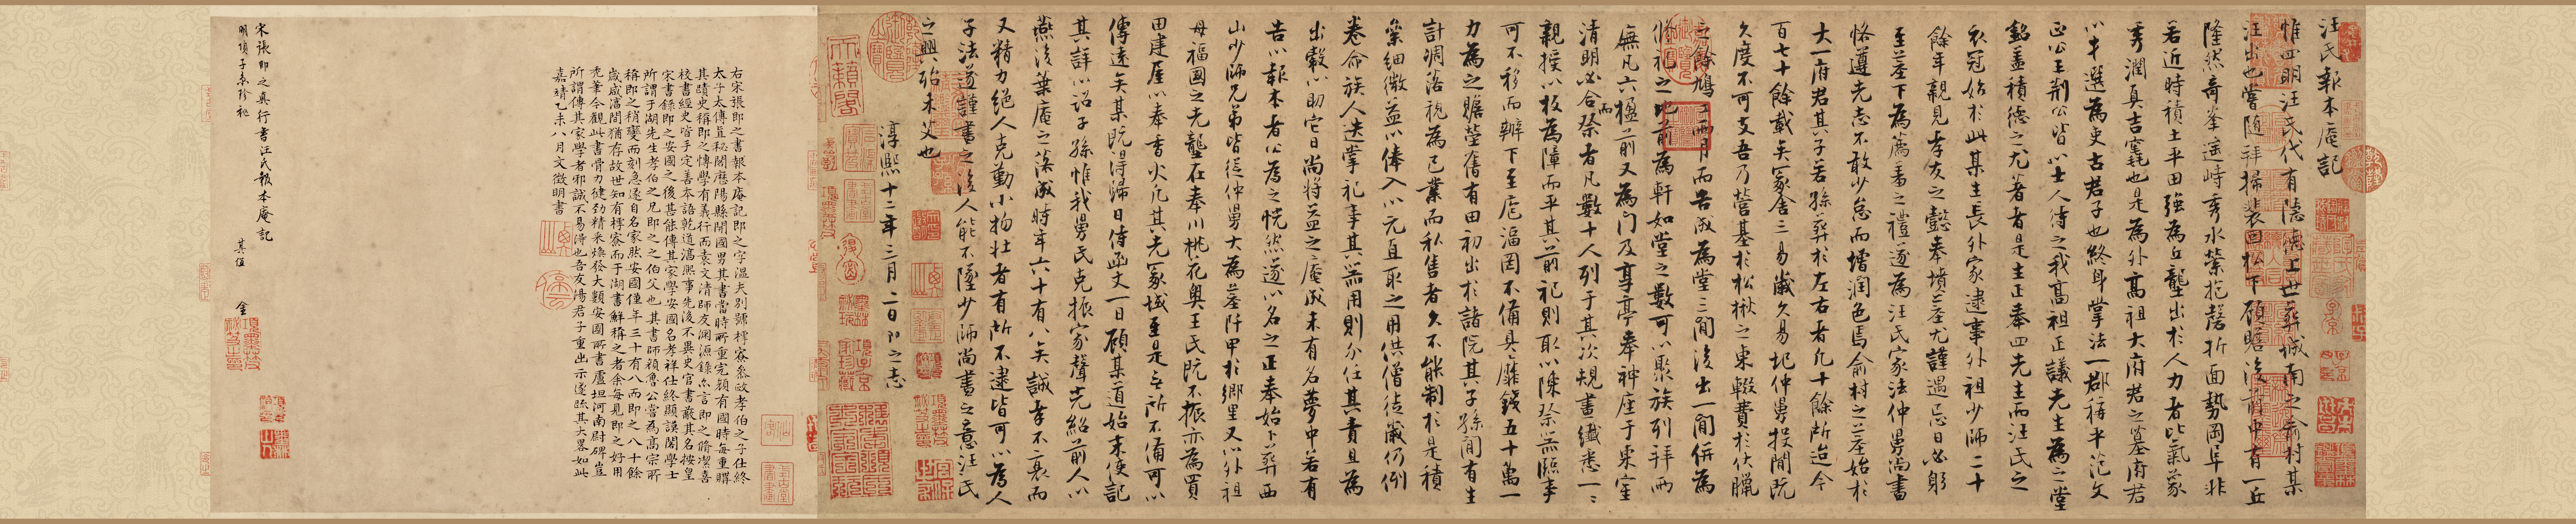 汪氏報本庵記
惟四明汪氏代有隱德上世葬城南之俞村某
汪出也嘗隨拜掃裴回松下顧瞻後前中有一丘
隆然奇峯遥峙秀水縈抱磬折面勢岡阜非
若近時積土平田強為丘壟出於人力者比氣象
秀潤真吉竁也是為外高祖大府君之墓府君
以才選為吏古君子也終身掌法一郡稱平范文
正公王荆公皆以士人待之我高祖正議先生為之堂
銘盖積德之尤著者是生正奉四先生而汪氏之
衣冠始於此某生長外家逮事外祖少師二十
餘年親見孝友之懿奉墳墓尤謹遇忌日必躬
至墓下為薦羞之禮遂為汪氏家法仲舅尚書
恪遵先志不敢少怠而增潤色焉俞村之墓始於
大一府君其子若孫葬於左右者凡十餘所迨今
百七十餘載矣冢舍三易歲久易圮仲舅投閒既
久度不可支吾乃營基於松楸之東輟費於伏臘
之餘鳩工兩月而告成為堂三間後出一間併為
脩祀之地前為軒如堂之數可以聚族列拜兩
廡凡六楹前又為门及享亭奉神座于東室
清明必合祭者凡數十人列于其次規畫纖悉一一
而
親授以板為障而平其前祀則取以陳祭器臨事
可不移而辦下至庖湢罔不備具靡錢五十萬一
力為之贍塋舊有田初出於諸院其子孫間有生
計凋落視為己業而私售者久不能制於是積
絫細微益以俸入以元直取之用供僧徒歲仍例
卷命族人迭掌祀事其器用則分任其責且為
出穀以助它日尚將益之庵成未有名夢中若有
告以報本者公為之恍然遂以名之正奉始卜葬西
山少師兄弟皆從仲舅大為墓阡甲於鄉里又以外祖
母福國之先壟在奉川桃花奥王氏既不振亦為買
田建屋以奉香火凡其先冢域至是无所不備可以
傳遠矣某既得歸日侍函丈一日顧某道始末使記
其詳以詔子孫惟我舅氏克振家聲光紹前人以
燕後葉庵之落成時年六十有八矣誠孝不衰而
又精力絕人克勤小物壮者有所不逮皆可以為人
子法遂謹書之後人能不墜少師尚書之意汪氏
之興殆未艾也
淳熙十二年三月二日即之志
右宋張即之書報本庵記即之字溫夫別號樗寮叅政孝伯之子仕終
太子太傅直秘閣歷陽縣開國男其書當時所重完顏有國時每重購
其蹟史稱即之博學有義行而袁文清師友淵源錄亦言即之脩潔喜
校書經史皆手定善本語乾道淳熙事先後不異史官書蔽其名按皇
宋書錄即之安國之後甚能傳其家學安國名孝祥仕終顯謨閣學士
所謂于湖先生孝伯之兄即之之伯父也其書師顏魯公嘗為高宗所
稱即之稍變而刻急遂自名家然安國僅年三十有八而即之八十餘
歲咸淳間猶存故世知有樗寮而于湖書鮮稱之者余每見即之好用
禿筆今觀此書骨力健勁精采煥發大類安國所書盧坦河南尉碑豈
所謂傳其家學者邪誠不易得也吾友湯君子重出示遂疏其大畧如此
嘉靖乙未八月文徵明書
宋張即之真行書汪氏報本庵記
明項子京珍秘
其值
金